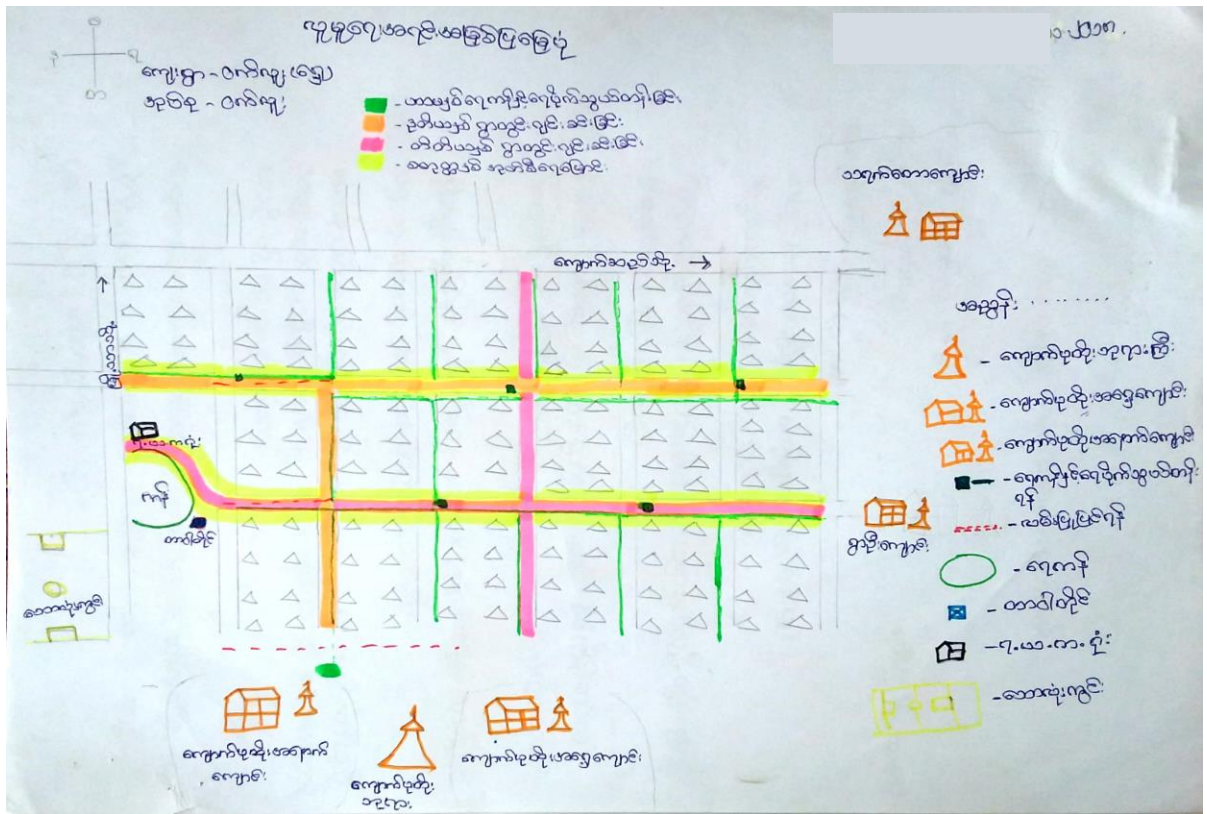 လူမှုရေးအရင်းအမြစ်ပြမြေပုံ
ကျေးရွာ - ဝက်လူး (မြောက်)
အုပ်စု - ဝက်လူး
- ပထမနှစ် ရေကန်နှင့်ရေပိုက်သွယ်တန်းခြင်း
- ဒုတိယနှစ် ရွာတွင်းလျှင်းခင်းခြင်း
- တတိယနှစ် ရွာတွင်း
- စတုတ္ထနှစ် အုတ်စီရေမြောင်း
သရက်တောကျောင်း
ကျောက်ဆည်သို့ →
အညွှန်း
- ကျောက်ဖူထိုးဘုရားကြီး
- ကျောက်ဖူထိုးအရှေ့ကျောင်း
- ကျောက်ဖူထိုးအနောက်ကျောင်း
- ရေကန်နှင့်ရေပိုက်သွယ်တန်း
ရန်
- လမ်းပြုပြင်ရန်
- ရေကန်
- တာဝါတိုင်
- ရ.ယာ.က.ရုံး
- ဘောလုံးကွင်း
ရ.ယာ.က.ရုံး
ကန်
တာဝါတိုင်
ဘောလုံးကွင်း
ရွာဦးကျောင်း
ကျောက်ဖူထိုးအနောက်
ကျောင်း
ကျောက်ဖူထိုး
ဘုရား
ကျောက်ဖူထိုးအရှေ့ကျောင်း